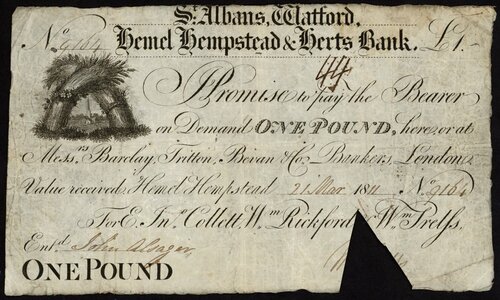 St. Albans, Watford,
No. 9164 Hemel Hempstead & Herts Bank. £1.
44
I Promise to pay the Bearer
on Demand ONE POUND, here, or at
Messrs. Barclay, Tritton, Bevan & Co., Bankers, London.
Value received, Hemel Hempstead 21 Mar 1811 No. 9164
For E. Jno. Collett, Wm. Rickford & Wm. Trelss.
Entd. John
ONE POUND